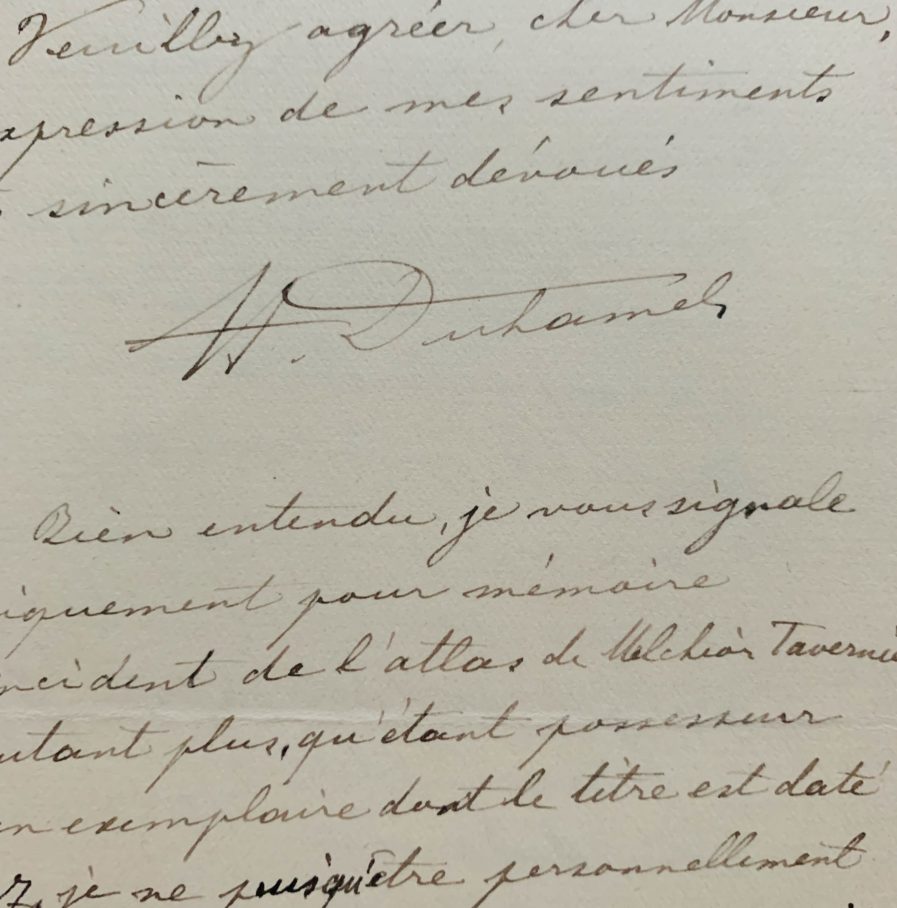 Veuillez agréer, cher Monsieur,
xpression de mes sentiments
sincèrement dévoués
H. Duhamel
Bien entendu, je vous signale
iquement pour mémoire
ncident de l'atlas de Melchior Tavernie
utant plus, qu'étant possesseur
n exemplaire dont le titre est daté
je ne puis qu'être personnellement